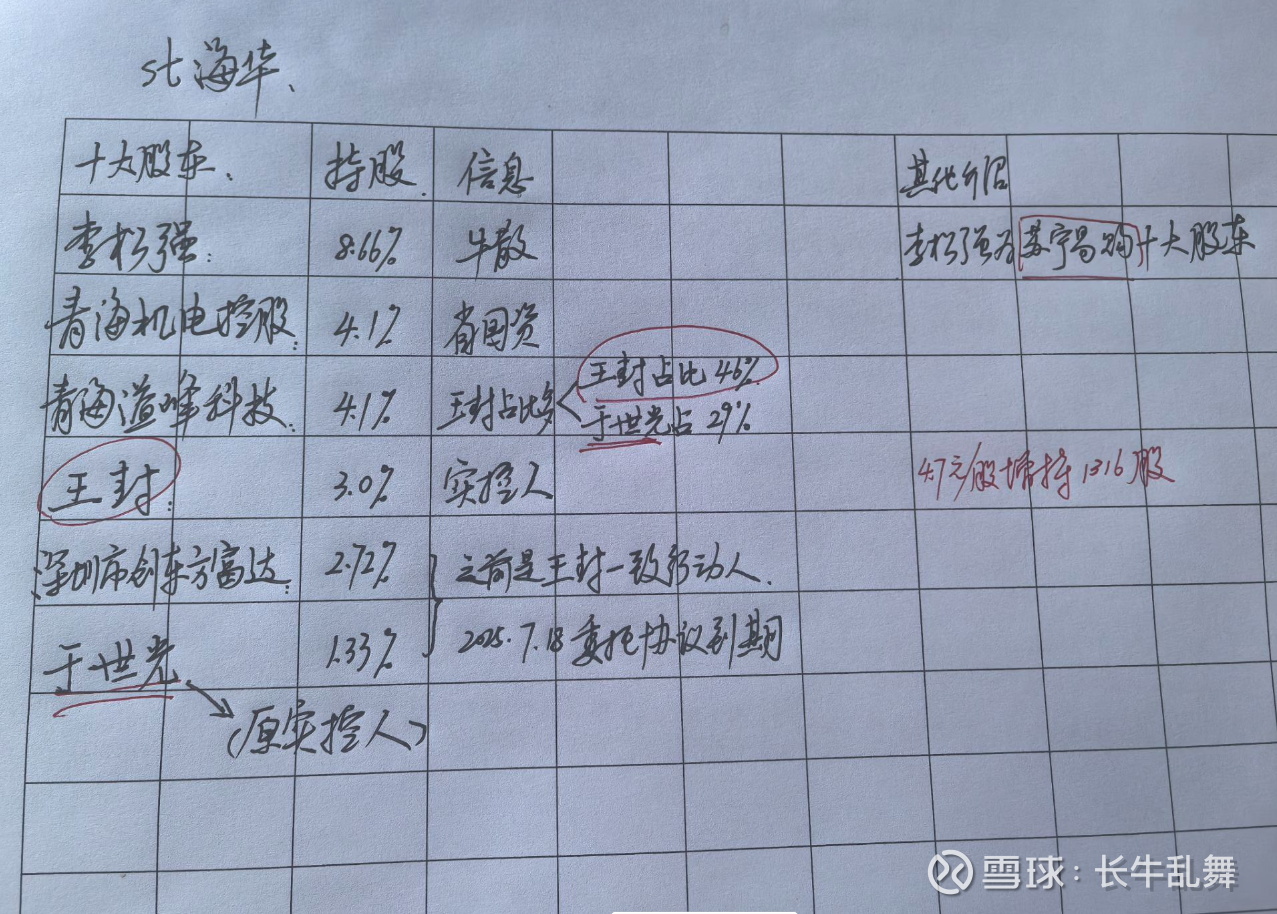 st海华、
十大股东、 持股 信息 其他介绍
李松强： 8.66% 牛散 李松强为苏宁易购十大股东
青海机电控股： 4.1% 省国资
青海溢峰科技： 4.1% 王封占比多 王封占比46%
于世光占29%
王封： 3.0% 实控人 4.7元/股增持1316股
深圳市创东方富达： 2.72% 之前是王封一致行动人、
于世光 1.33% 2025.7.18委托协议到期
（原实控人）
雪球：长牛乱舞